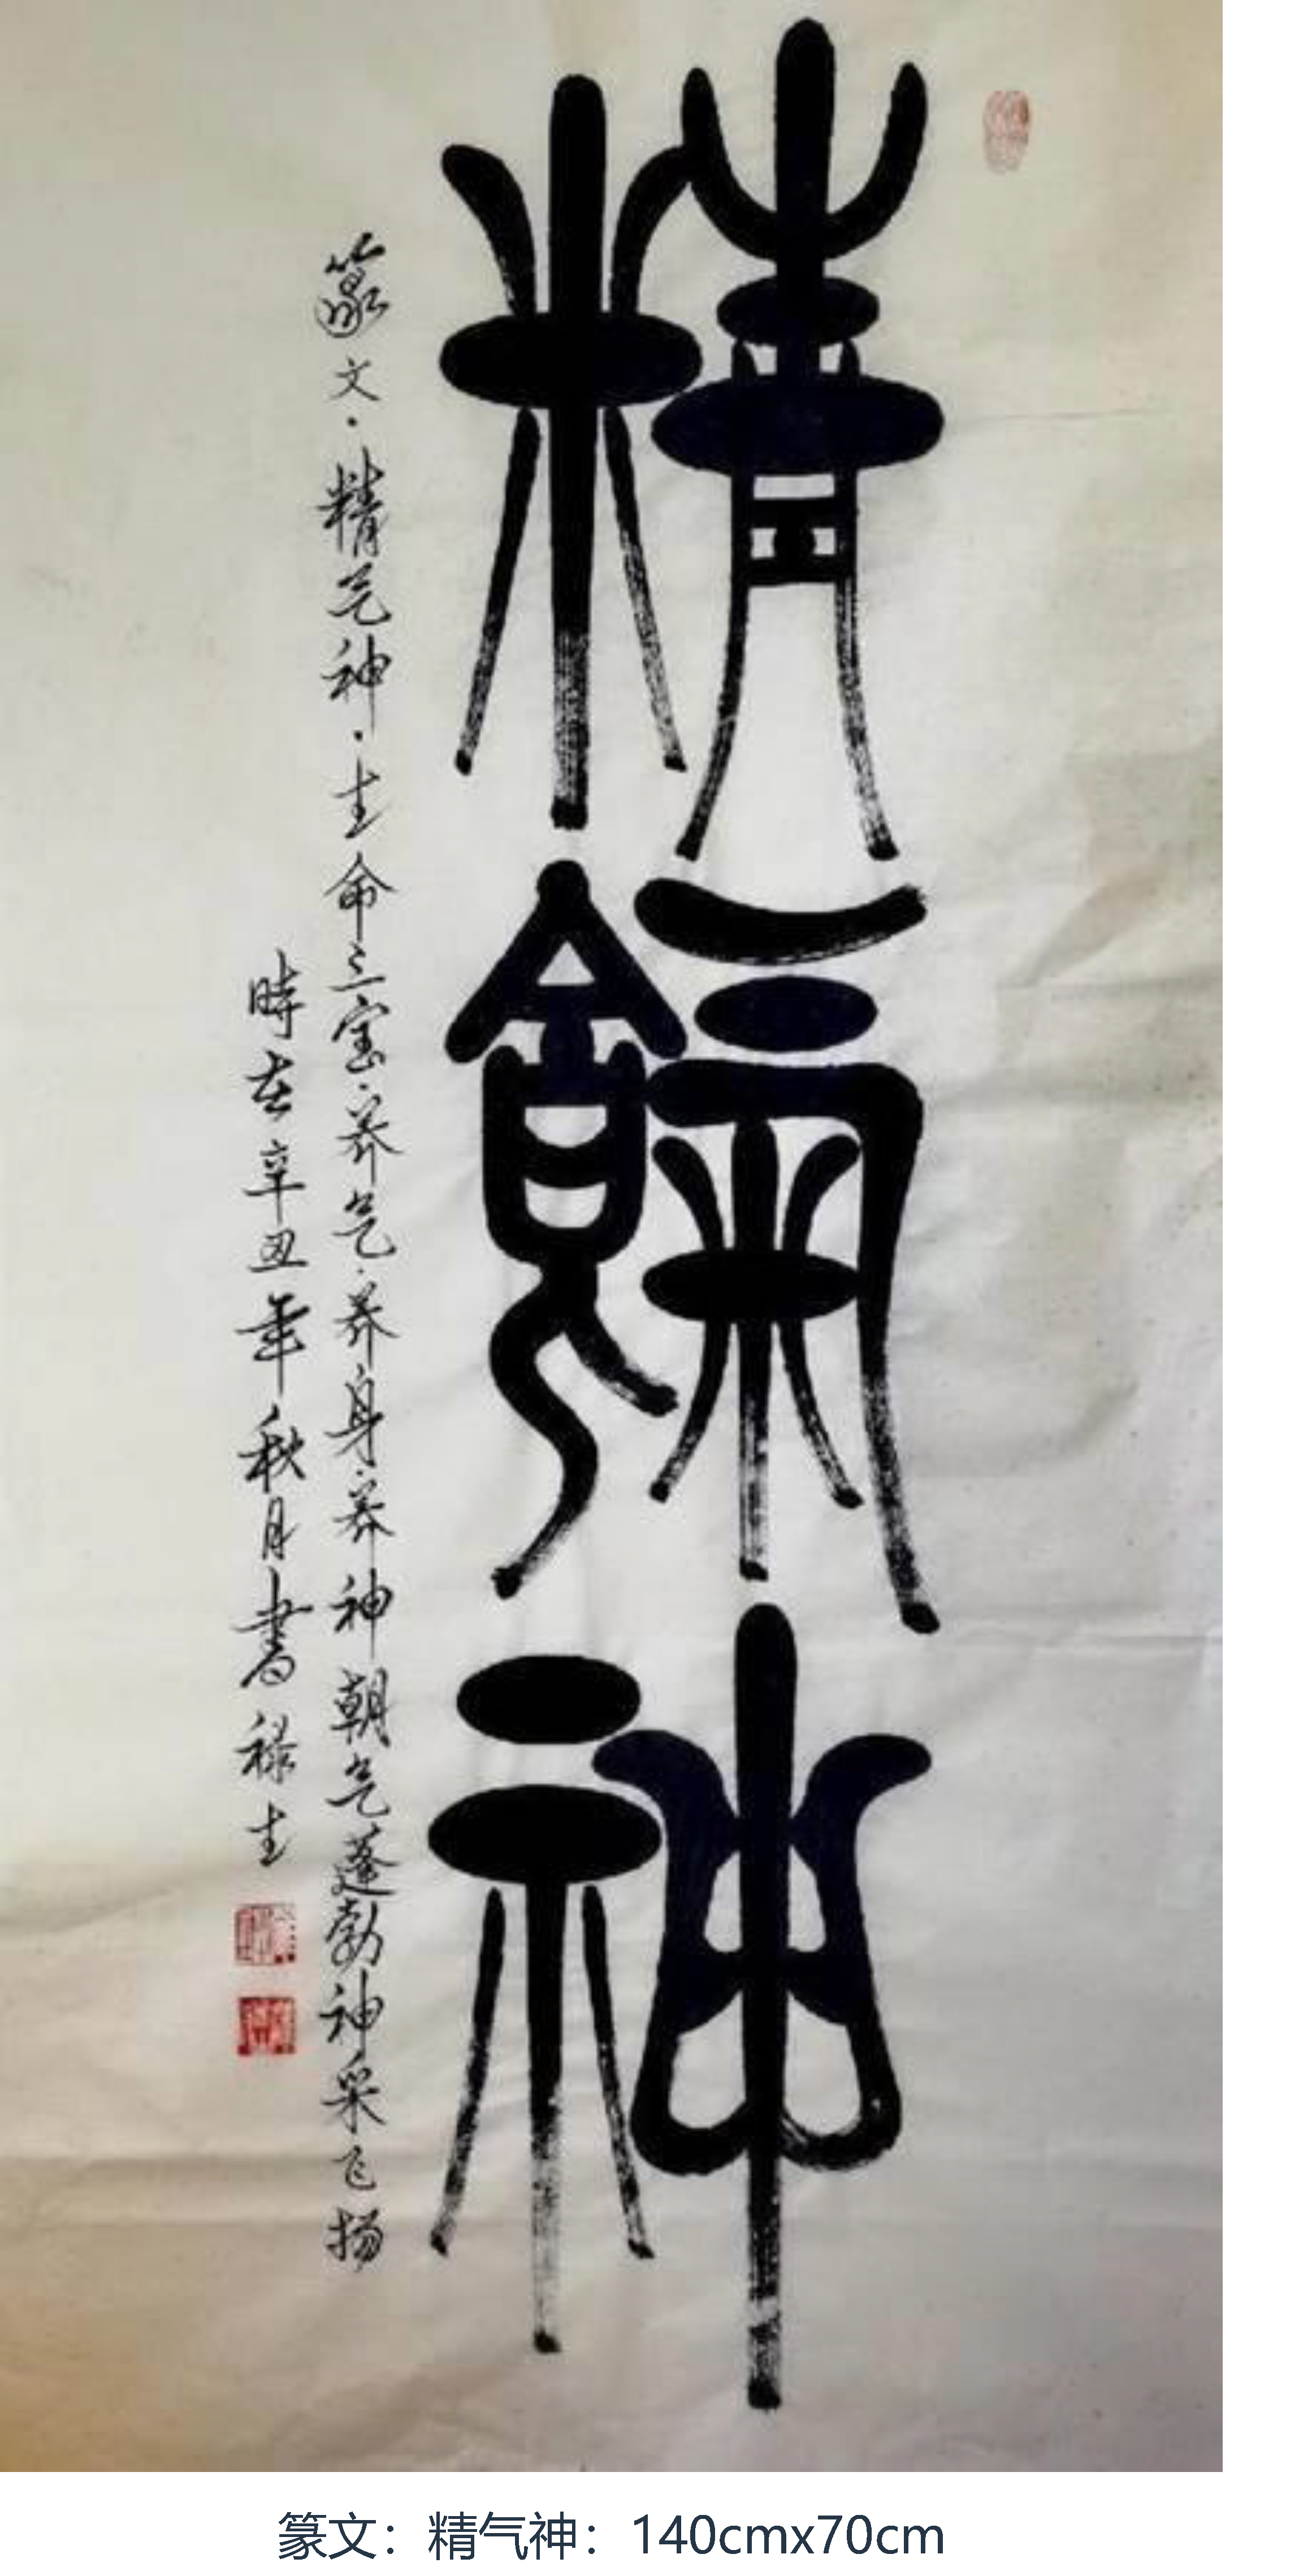 精餼神
篆文·精气神·生命三宝·养气·养身·养神朝气蓬勃神采飞扬
時在辛丑年秋月書禄生
篆文：精气神：140cmx70cm